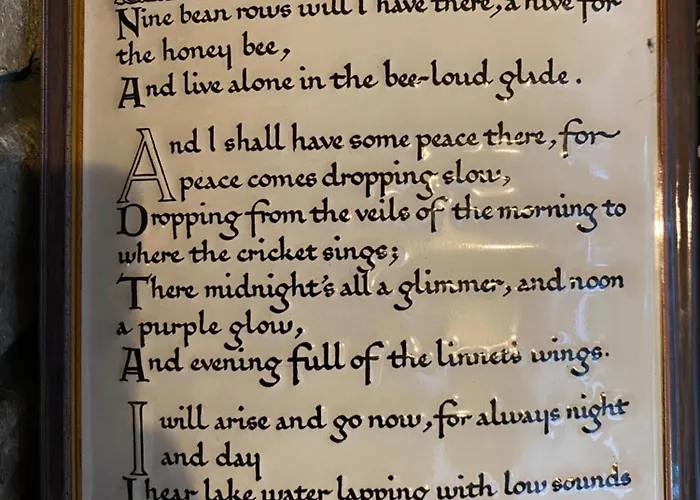 Nine bean rows will I have there, a hive for
the honey bee,
And live alone in the bee-loud glade.
And I shall have some peace there, for
peace comes dropping slow,
Dropping from the veils of the morning to
where the cricket sings;
There midnight's all a glimmer, and noon
a purple glow,
And evening full of the linnet's wings.
I will arise and go now, for always night
and day
I hear lake water lapping with low sounds